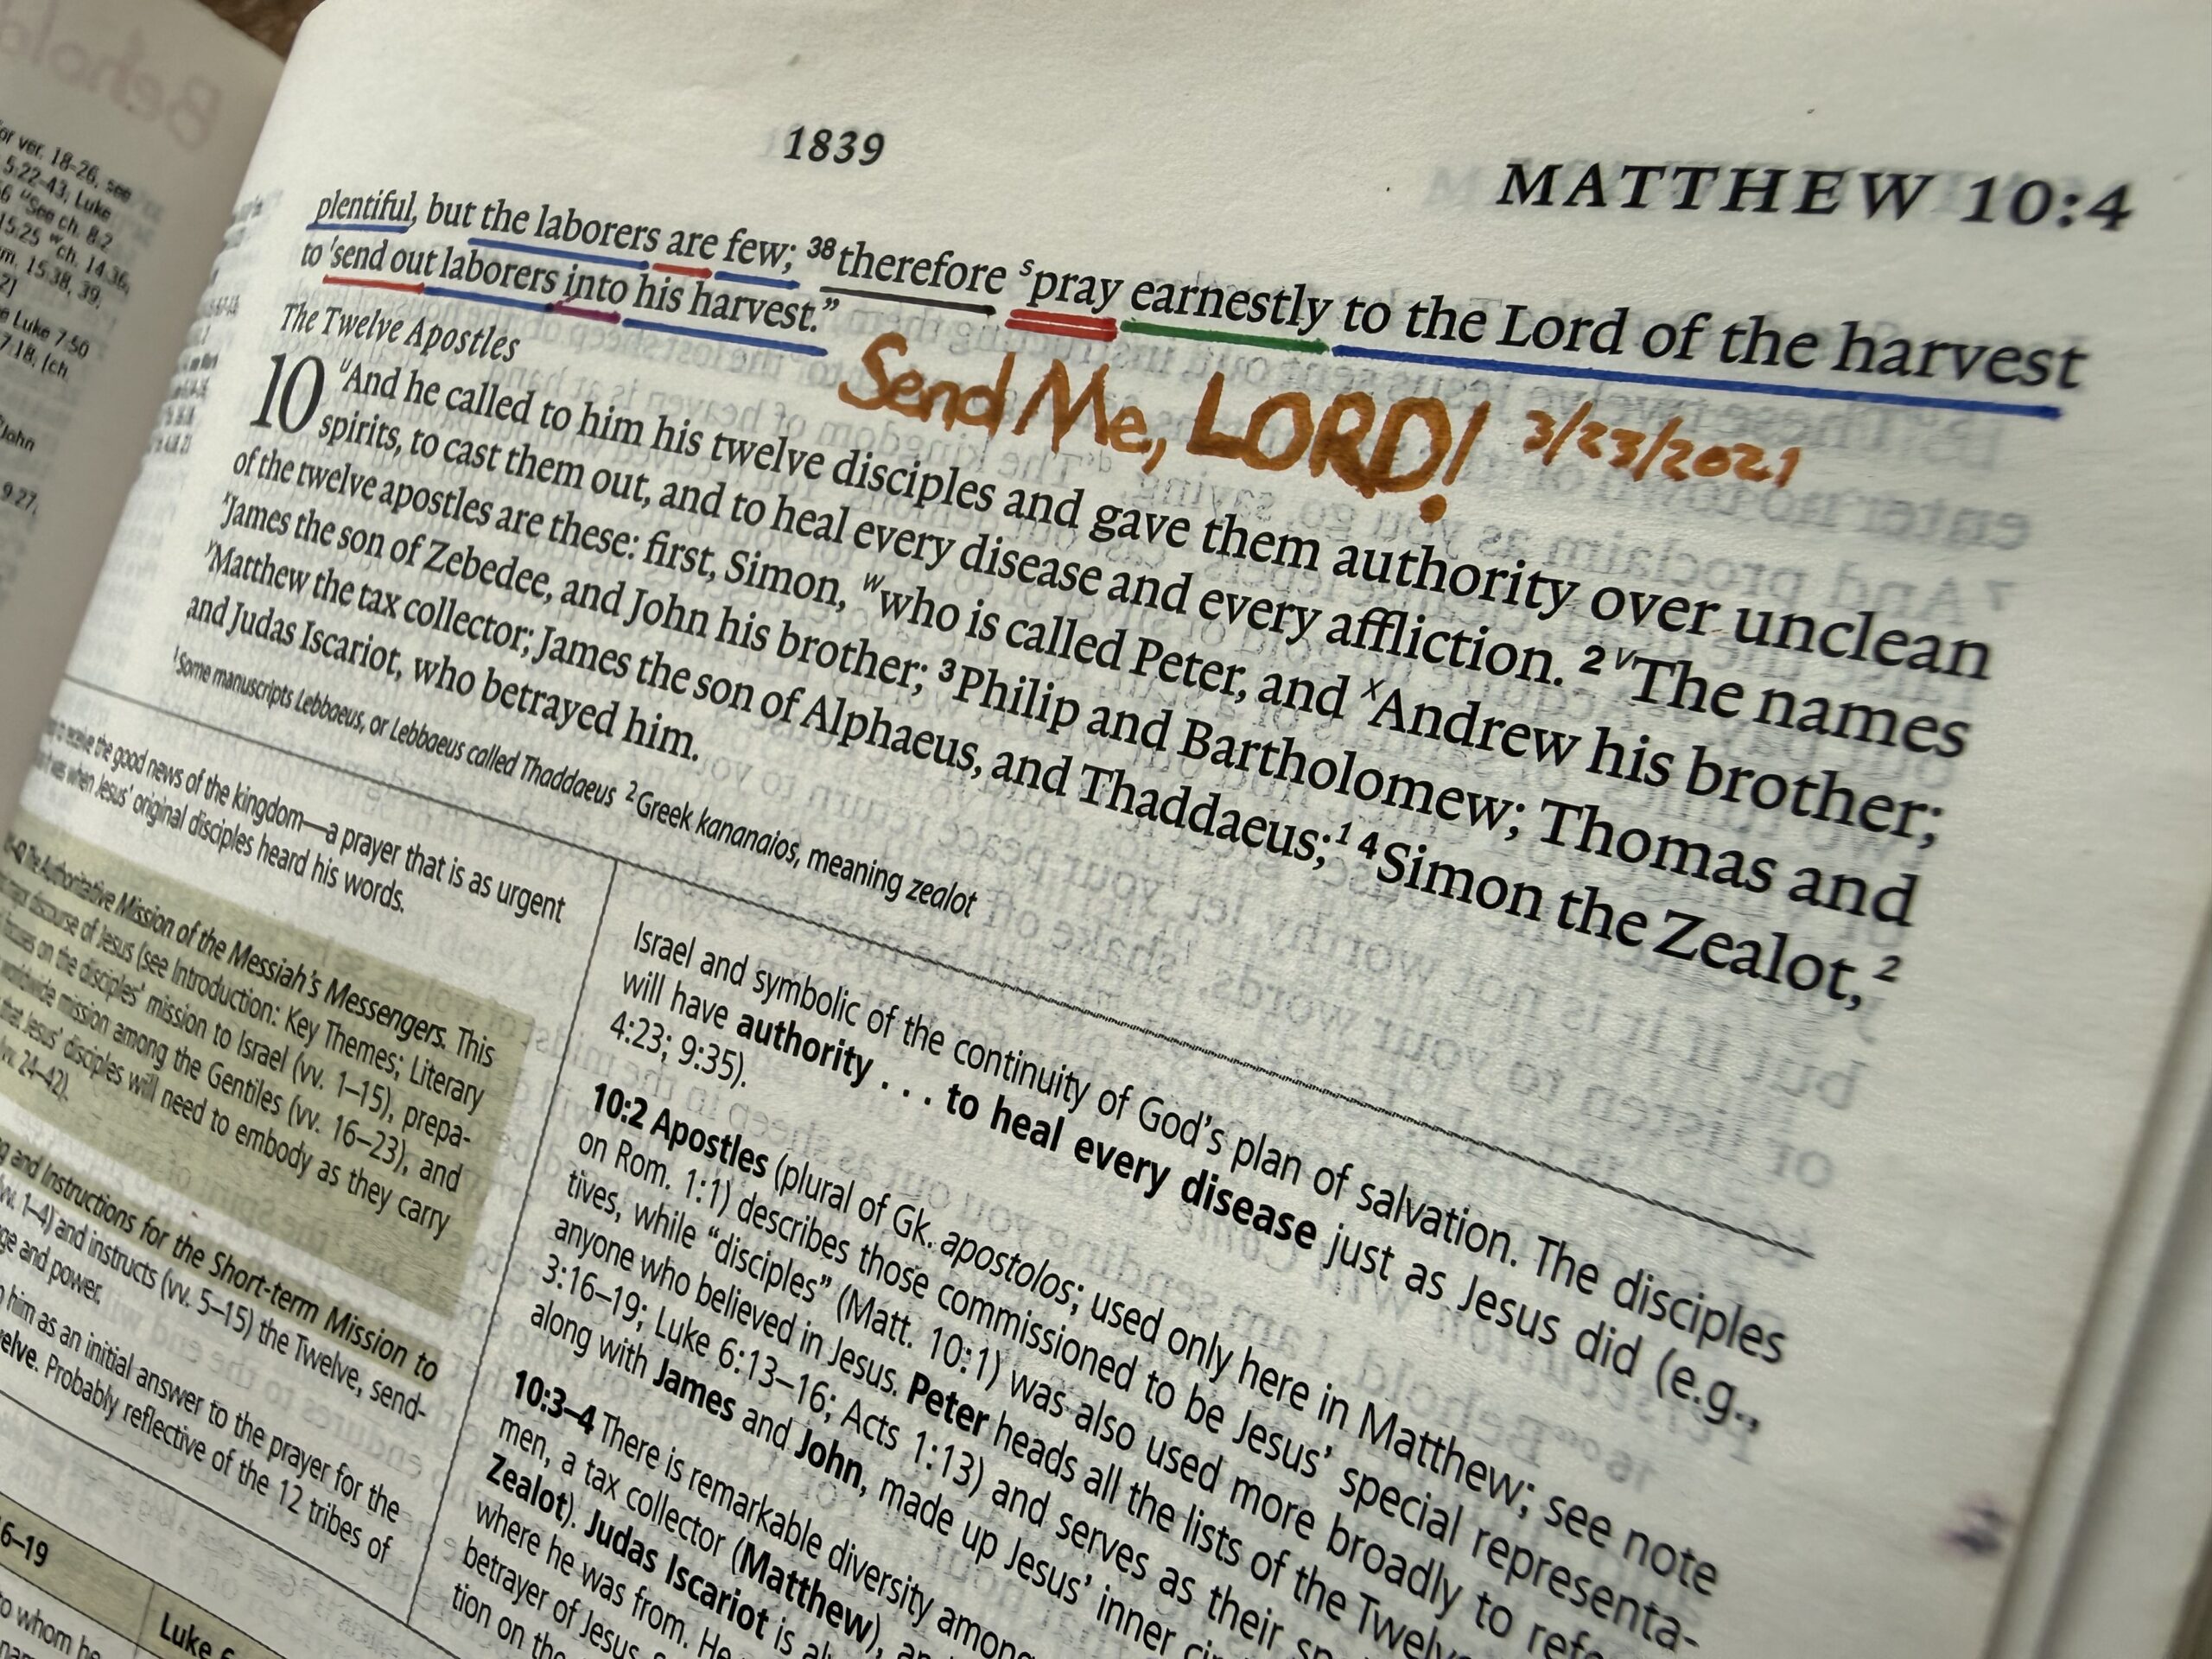 Behold
for ver. 18-26, see
5:22-43; Luke
See ch. 8:2
15:25 ʷch. 14:36,
15:38, 39,
Luke 7:50
7:18, [ch.
John
9:27,
1839
MATTHEW 10:4
plentiful, but the laborers are few; ³⁸therefore ˢpray earnestly to the Lord of the harvest
to ᵗsend out laborers into his harvest.”
Send Me, LORD! 3/23/2021
The Twelve Apostles
10 ᵘAnd he called to him his twelve disciples and gave them authority over unclean
spirits, to cast them out, and to heal every disease and every affliction. ²ᵛThe names
of the twelve apostles are these: first, Simon, ʷwho is called Peter, and ˣAndrew his brother;
ˣJames the son of Zebedee, and John his brother; ³Philip and Bartholomew; Thomas and
ʸMatthew the tax collector; James the son of Alphaeus, and Thaddaeus;¹ ⁴Simon the Zealot,²
and Judas Iscariot, who betrayed him.
¹Some manuscripts Lebbaeus, or Lebbaeus called Thaddaeus ²Greek kananaios, meaning zealot
to receive the good news of the kingdom—a prayer that is as urgent
when Jesus’ original disciples heard his words.
The Authoritative Mission of the Messiah’s Messengers. This
discourse of Jesus (see Introduction: Key Themes; Literary
focuses on the disciples’ mission to Israel (vv. 1–15), prepa-
worldwide mission among the Gentiles (vv. 16–23), and
that Jesus’ disciples will need to embody as they carry
(vv. 24–42).
and Instructions for the Short-term Mission to
(vv. 1–4) and instructs (vv. 5–15) the Twelve, send-
and power.
him as an initial answer to the prayer for the
Probably reflective of the 12 tribes of
6–19
to whom he
Luke 6
Israel and symbolic of the continuity of God’s plan of salvation. The disciples
will have authority . . . to heal every disease just as Jesus did (e.g.,
4:23; 9:35).
10:2 Apostles (plural of Gk. apostolos; used only here in Matthew; see note
on Rom. 1:1) describes those commissioned to be Jesus’ special representa-
tives, while “disciples” (Matt. 10:1) was also used more broadly to refer
anyone who believed in Jesus. Peter heads all the lists of the Twelve
3:16–19; Luke 6:13–16; Acts 1:13) and serves as their
along with James and John, made up Jesus’ inner
10:3–4 There is remarkable diversity among
men, a tax collector (Matthew),
Zealot). Judas Iscariot is
where he was from. He
betrayer of Jesus
tion on the